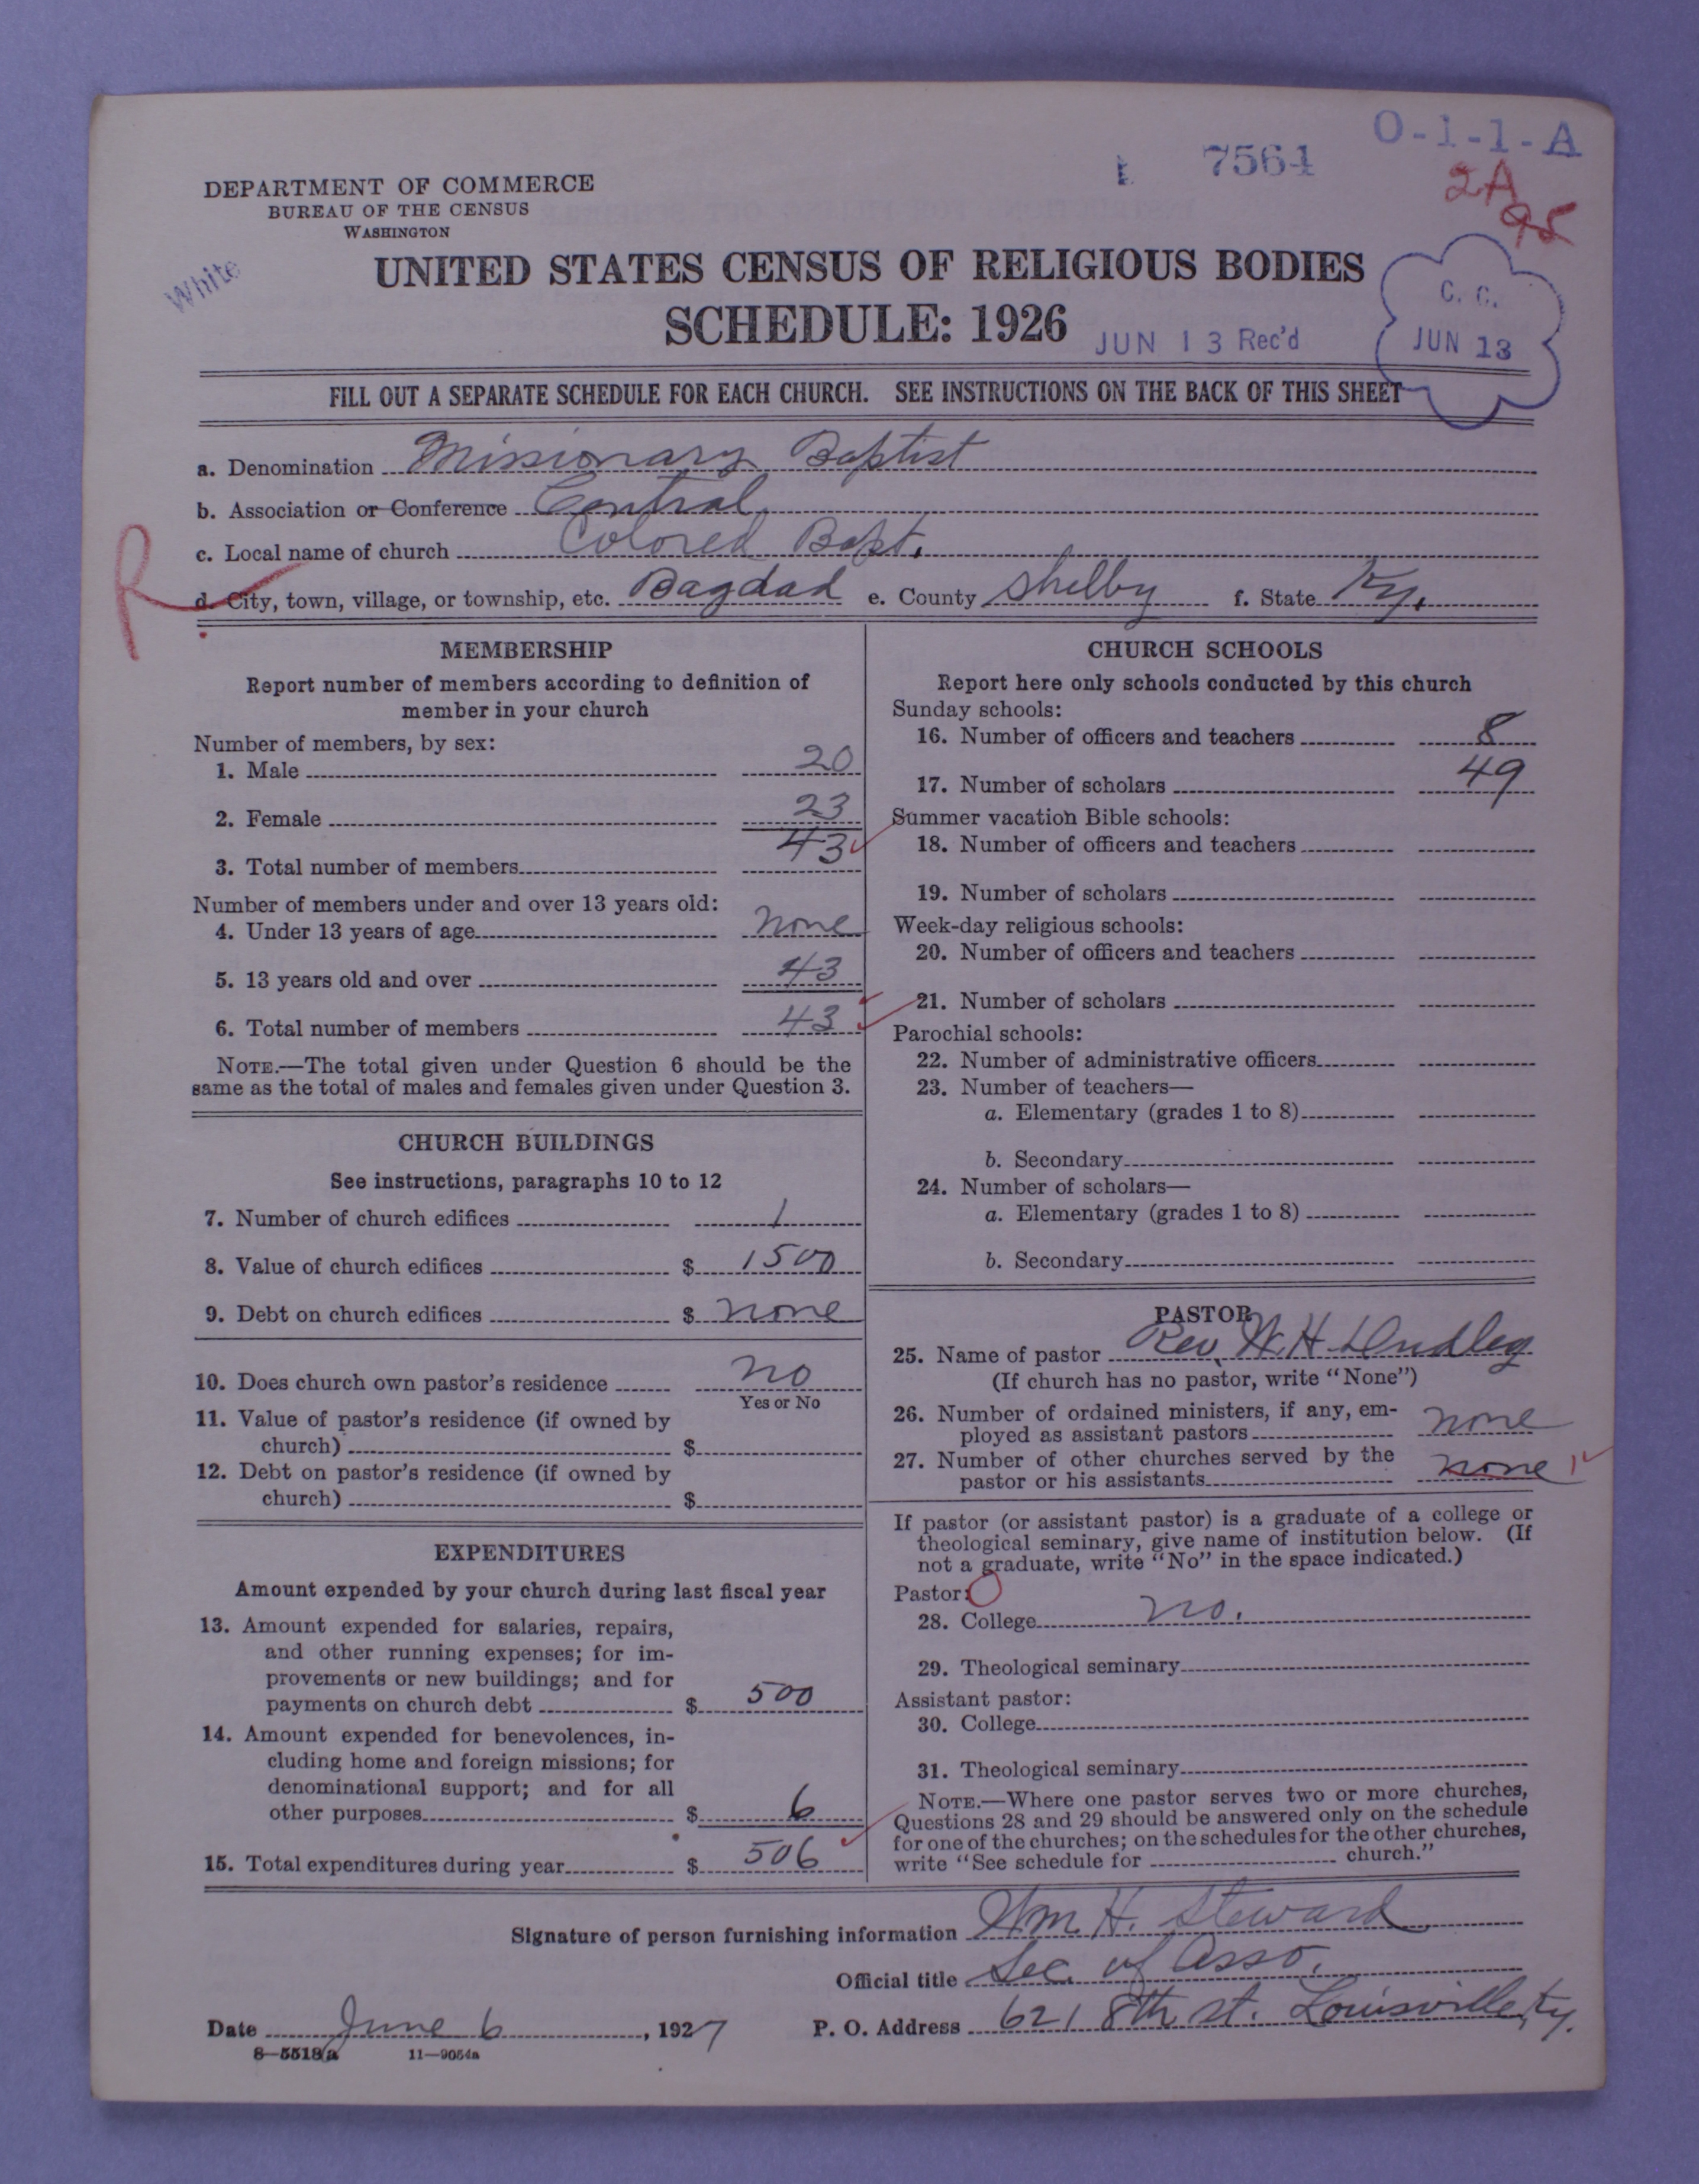 O-1-1-A
7564
2A
95
DEPARTMENT OF COMMERCE
BUREAU OF THE CENSUS
WASHINGTON
White
UNITED STATES CENSUS OF RELIGIOUS BODIES
SCHEDULE: 1926
JUN 13 Rec'd
C. C.
JUN 13
FILL OUT A SEPARATE SCHEDULE FOR EACH CHURCH. SEE INSTRUCTIONS ON THE BACK OF THIS SHEET
a. Denomination Missionary Baptist
b. Association or Conference Central
c. Local name of church Colored Bapt.
R
d. City, town, village, or township, etc. Bagdad e. County Shelby f. State Ky.
MEMBERSHIP
Report number of members according to definition of
member in your church
Number of members, by sex:
1. Male 20
2. Female 23
3. Total number of members 43
Number of members under and over 13 years old:
4. Under 13 years of age none
5. 13 years old and over 43
6. Total number of members 43
NOTE.—The total given under Question 6 should be the
same as the total of males and females given under Question 3.
CHURCH BUILDINGS
See instructions, paragraphs 10 to 12
7. Number of church edifices 1
8. Value of church edifices $ 1500
9. Debt on church edifices $ none
10. Does church own pastor's residence no
Yes or No
11. Value of pastor's residence (if owned by
church) $
12. Debt on pastor's residence (if owned by
church) $
EXPENDITURES
Amount expended by your church during last fiscal year
13. Amount expended for salaries, repairs,
and other running expenses; for im-
provements or new buildings; and for
payments on church debt $ 500
14. Amount expended for benevolences, in-
cluding home and foreign missions; for
denominational support; and for all
other purposes $ 6
15. Total expenditures during year $ 506
CHURCH SCHOOLS
Report here only schools conducted by this church
Sunday schools:
16. Number of officers and teachers 8
17. Number of scholars 49
Summer vacation Bible schools:
18. Number of officers and teachers
19. Number of scholars
Week-day religious schools:
20. Number of officers and teachers
21. Number of scholars
Parochial schools:
22. Number of administrative officers
23. Number of teachers—
a. Elementary (grades 1 to 8)
b. Secondary
24. Number of scholars—
a. Elementary (grades 1 to 8)
b. Secondary
PASTOR
25. Name of pastor Rev. W. H. Dudley
(If church has no pastor, write "None")
26. Number of ordained ministers, if any, em-
ployed as assistant pastors none
27. Number of other churches served by the
pastor or his assistants none 1
If pastor (or assistant pastor) is a graduate of a college or
theological seminary, give name of institution below. (If
not a graduate, write "No" in the space indicated.)
Pastor:
28. College no.
29. Theological seminary
Assistant pastor:
30. College
31. Theological seminary
NOTE.—Where one pastor serves two or more churches,
Questions 28 and 29 should be answered only on the schedule
for one of the churches; on the schedules for the other churches,
write "See schedule for church."
Signature of person furnishing information Wm. H. Steward
Official title Sec. of Asso.
Date June 6, 1927 P. O. Address 621 8th st. Louisville, Ky.
8—5518a 11—9054a